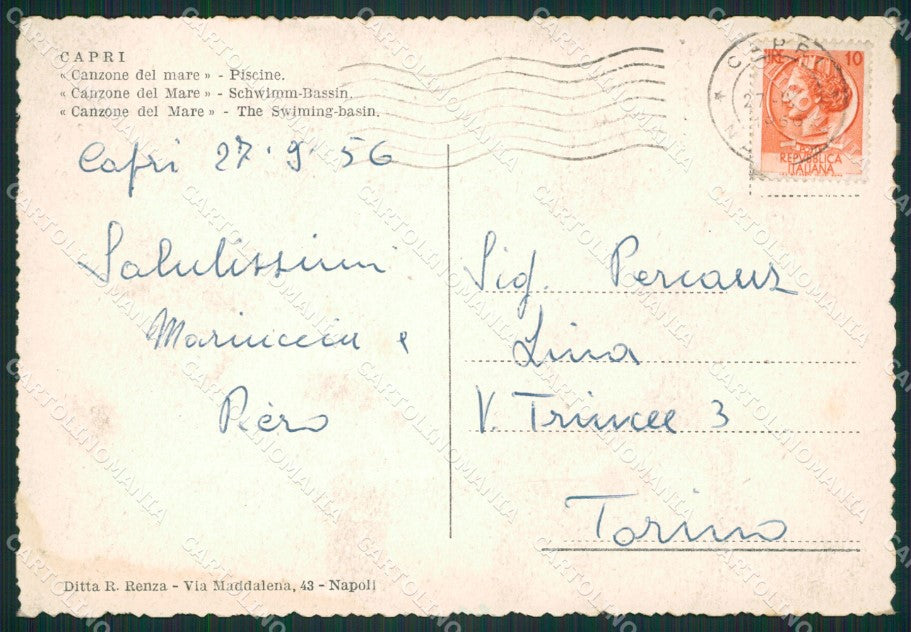 CAPRI
« Canzone del mare » - Piscine.
« Canzone del Mare » - Schwimm-Bassin.
« Canzone del Mare » - The Swiming-basin.
LIRE 10
REPUBBLICA
ITALIANA
Capri 27·9·56
Salutissimi
Mariuccia e
Piero
Sig.
Lina
V. 3
Torino
Ditta R. Renza - Via Maddalena, 43 - Napoli
CARTOLINOMANIA